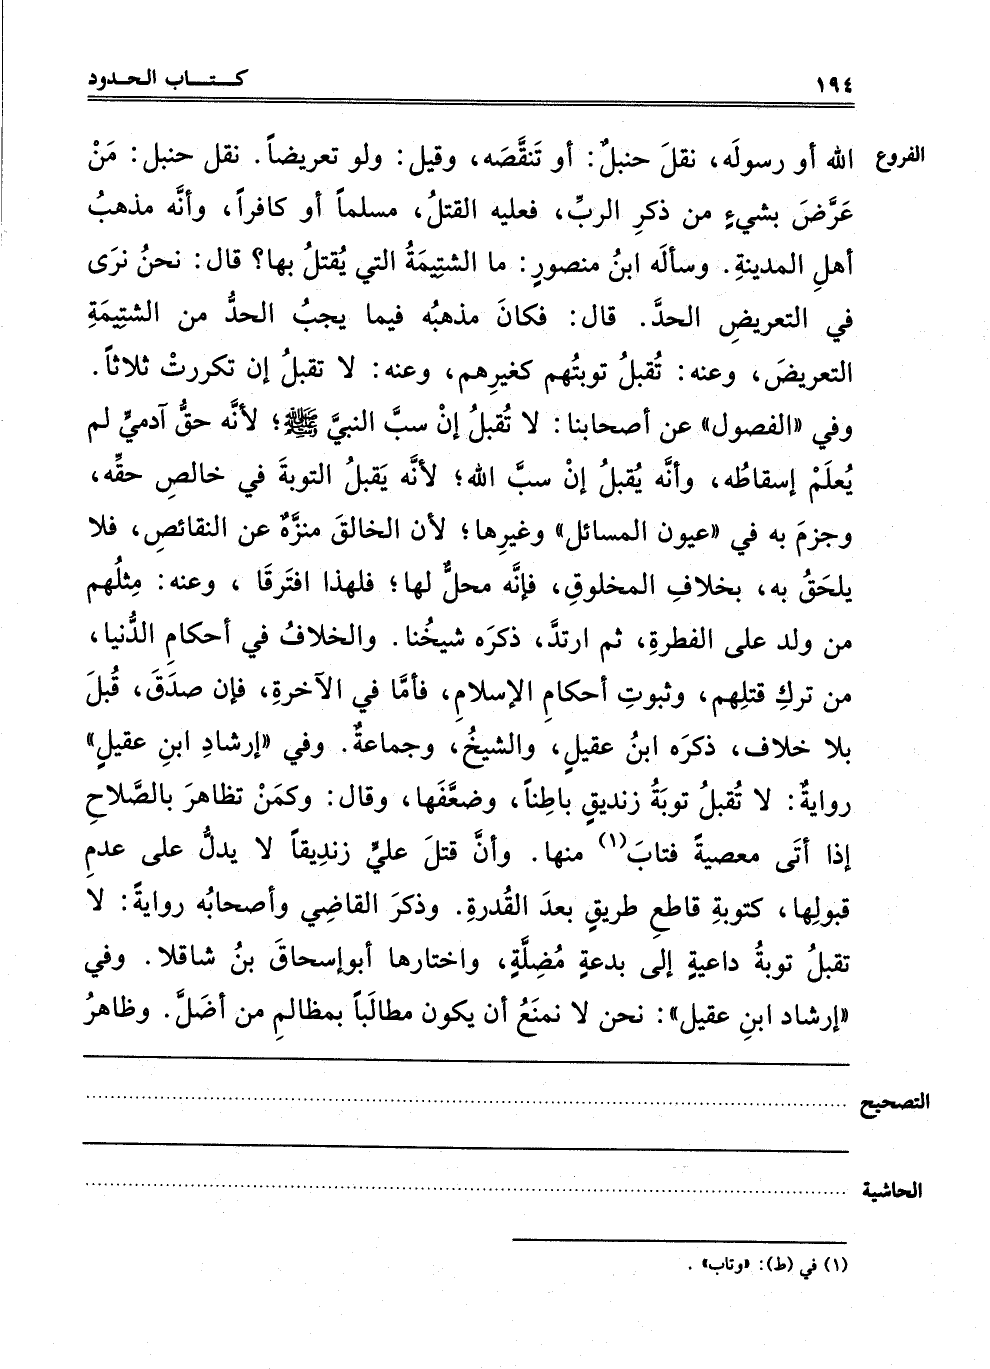 ١٩٤ كـتـــاب الـحـدود
الفروع الله أو رسولَه، نقلَ حنبلٌ: أو تَنقَّصَه، وقيل: ولو تعريضاً. نقل حنبل: مَنْ
عَرَّضَ بشيءٍ من ذكرِ الربِّ، فعليه القتلُ، مسلماً أو كافراً، وأنَّه مذهبُ
أهلِ المدينةِ. وسألَه ابنُ منصورٍ: ما الشتِيمَةُ التي يُقتلُ بها؟ قال: نحنُ نرَى
في التعريضِ الحدَّ. قال: فكانَ مذهبُه فيما يجبُ الحدُّ من الشتِيمَةِ
التعريضَ، وعنه: تُقبلُ توبتُهم كغيرِهم، وعنه: لا تقبلُ إن تكررتْ ثلاثاً.
وفي «الفصول» عن أصحابنا: لا تُقبلُ إنْ سبَّ النبيَّ ﷺ؛ لأنَّه حقُّ آدميٍّ لم
يُعلَمْ إسقاطُه، وأنَّه يُقبلُ إنْ سبَّ الله؛ لأنَّه يَقبلُ التوبةَ في خالصِ حقِّه،
وجزمَ به في «عيون المسائل» وغيرِها؛ لأن الخالقَ منزَّهٌ عن النقائصِ، فلا
يلحَقُ به، بخلافِ المخلوقِ، فإنَّه محلٌّ لها؛ فلهذا افتَرقَا ، وعنه: مِثلُهم
من ولد على الفطرةِ، ثم ارتدَّ، ذكرَه شيخُنا. والخلافُ في أحكامِ الدُّنيا،
من تركِ قتلِهم، وثبوتِ أحكامِ الإسلامِ، فأمَّا في الآخرةِ، فإن صدَقَ، قُبلَ
بلا خلاف، ذكرَه ابنُ عقيلٍ، والشيخُ، وجماعةٌ. وفي «إرشادِ ابنِ عقيلٍ»
روايةٌ: لا تُقبلُ توبَةُ زنديقٍ باطِناً، وضعَّفَها، وقال: وكمَنْ تظاهرَ بالصَّلاحِ
إذا أتَى معصيةً فتابَ(١) منها. وأنَّ قتلَ عليٍّ زندِيقاً لا يدلُّ على عدمِ
قبولِها، كتوبةِ قاطعِ طريقٍ بعدَ القُدرةِ. وذكرَ القاضِي وأصحابُه روايةً: لا
تقبلُ توبةُ داعيةٍ إلى بدعةٍ مُضِلَّةٍ، واختارها أبوإسحاقَ بنُ شاقلا. وفي
«إرشاد ابنِ عقيل»: نحن لا نمنَعُ أن يكون مطالَباً بمظالمِ من أضَلَّ. وظاهرُ
التصحيح ..........
الحاشية ..........
(١) في (ط): «وتاب» .